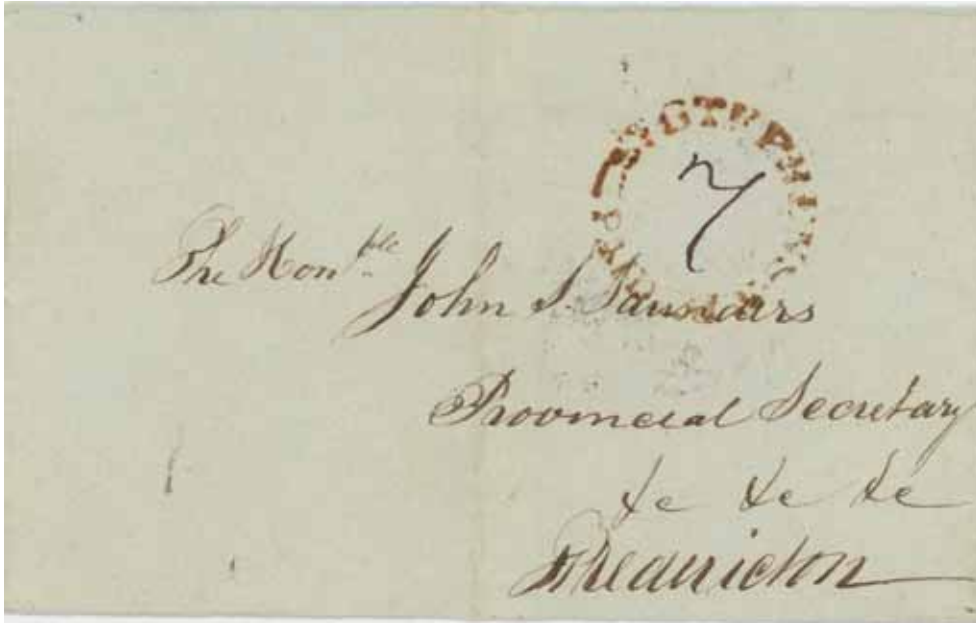 ST STEPHENS
7
The Honble John S. Saunders
Provincial Secretary
&c &c &c
Fredericton